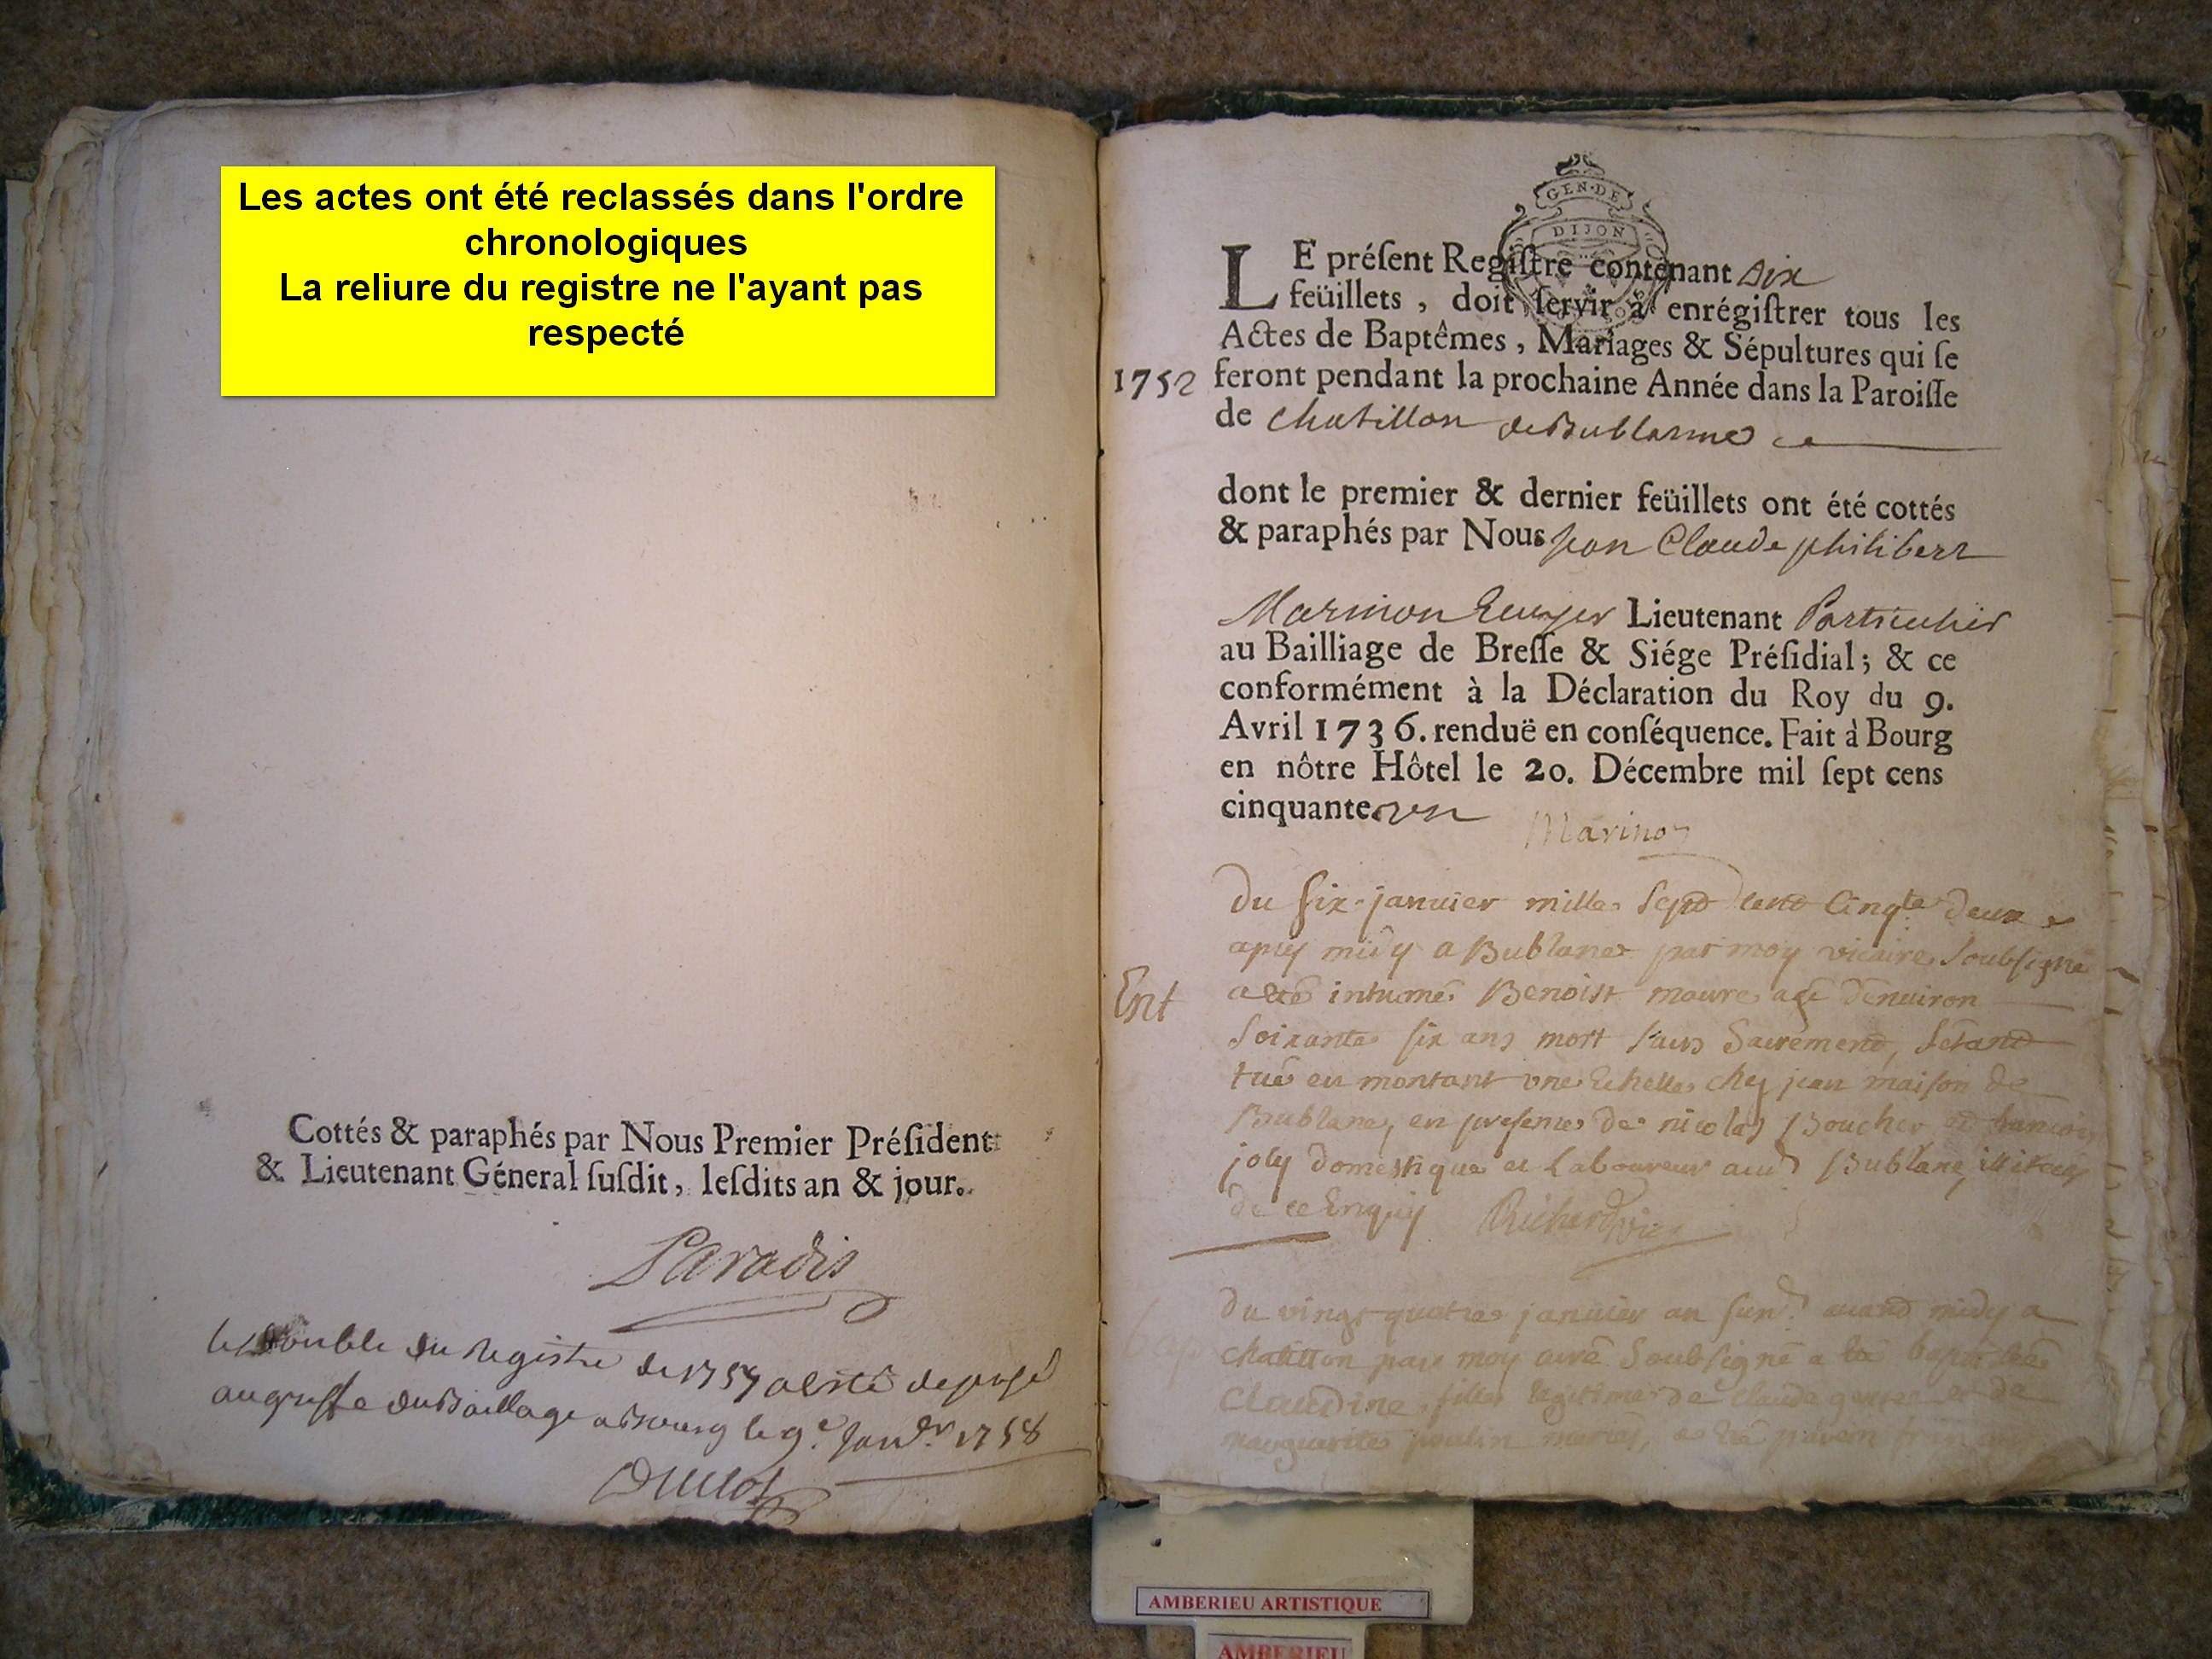 Les actes ont été reclassés dans l'ordre
chronologiques
La reliure du registre ne l'ayant pas
respecté
Cottés & paraphés par Nous Premier Préſident
& Lieutenant Géneral ſuſdit, leſdits an & jour.
Paradis
le double du Registre de 1757 a esté deposé
au greffe du Baillage a Bourg le 9e Janvr 1758
GEN·DE
DIJON
LE préſent Regiſtre contenant Dix
feüillets, doit ſervir à enrégiſtrer tous les
Actes de Baptêmes, Mariages & Sépultures qui ſe
1752 feront pendant la prochaine Année dans la Paroiſſe
de Chatillon de Bublanne
dont le premier & dernier feüillets ont été cottés
& paraphés par Nous Jean Claude philibert
Marinon Lieutenant Particulier
au Bailliage de Breſſe & Siége Préſidial; & ce
conformément à la Déclaration du Roy du 9.
Avril 1736. renduë en conſéquence. Fait à Bourg
en nôtre Hôtel le 20. Décembre mil ſept cens
cinquante un
Marinon
Du six janvier mille sept cent cinqte deux
apres midy a Bublane par moy vicaire soubsigné
Ent
a eté inhumé Benoist mourre agé denviron
soixante six ans mort sans sacrement, sétant
tué en montant une Echelle chez jean maison de
Bublane, en presence de nicolas Boucher et francois
joly domestique et Laboureur aud Bublane, illiteres
de ce Enquis Richard vic
Du vingt quatre janvier an susd avant midy a
chatillon par moy curé soubsigné a eté baptisée
Claudine fille legitime de Claude et de
marguerite poulin mariés, a eté parain
AMBERIEU ARTISTIQUE
AMBERIEU